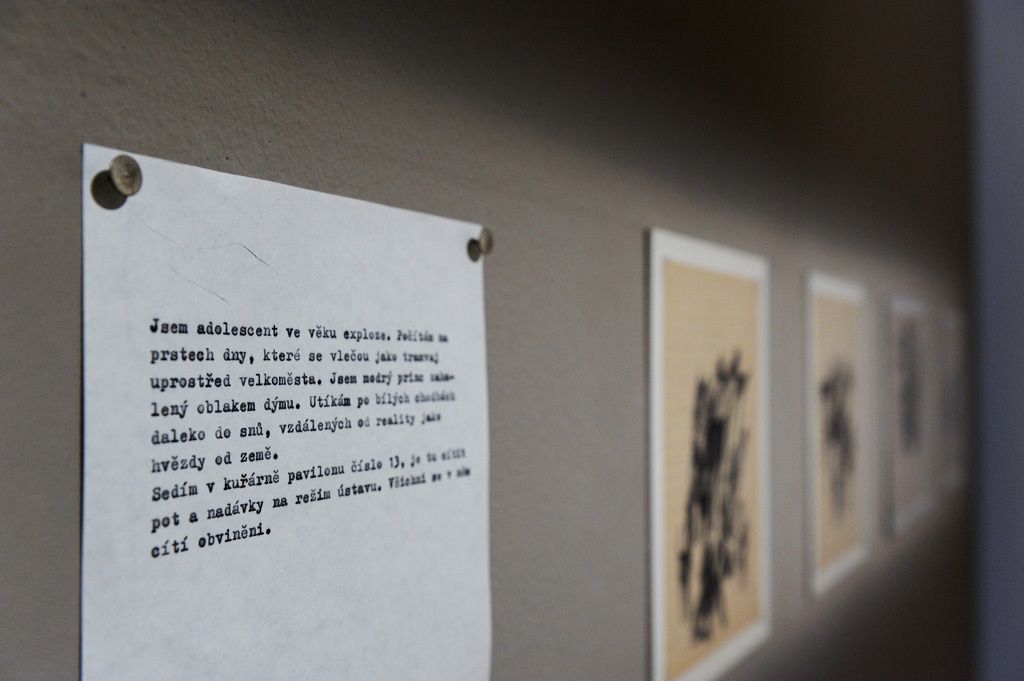 Jsem adolescent ve věku exploze. Počítám na
prstech dny, které se vlečou jako tramvaj
uprostřed velkoměsta. Jsem modrý princ zaha-
lený oblakem dýmu. Utíkám po bílých chodbách
daleko do snů, vzdálených od reality jako
hvězdy od země.
Sedím v kuřárně pavilonu číslo 13, je tu cítit
pot a nadávky na režim ústavu. Všichni se v něm
cítí obviněni.